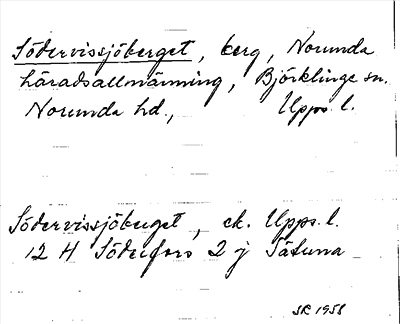 Södervissjöberget, berg, Norunda
häradsallmänning, Björklinge sn.
Norunda hd., Upps. l.
Södervissjöberget, ek. Upps. l.
12 H Söderfors 2 j Tätuna
SR 1958